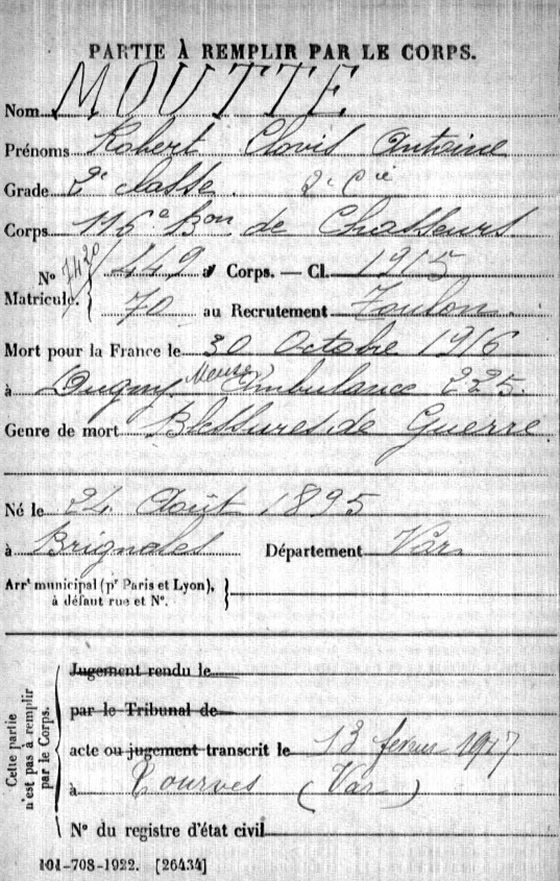 PARTIE À REMPLIR PAR LE CORPS.
Nom MOUTTE
Prénoms Robert Clovis Antoine
Grade 2e classe. 2e Cie
Corps 116e Bon de Chasseurs
7420
No 449 au Corps. — Cl. 1915
Matricule. 70 au Recrutement Toulon.
Mort pour la France le 30 Octobre 1916
à Dugny Meuse Ambulance 225.
Genre de mort Blessures de Guerre
Né le 24 Août 1895
à Brignoles Département Var
Arrt municipal (pr Paris et Lyon),
à défaut rue et No.
Cette partie
n'est pas à remplir
par le Corps.
Jugement rendu le
par le Tribunal de
acte ou jugement transcrit le 13 fevrier 1917
à Tourves (Var)
No du registre d'état civil
101-708-1922. [26434]